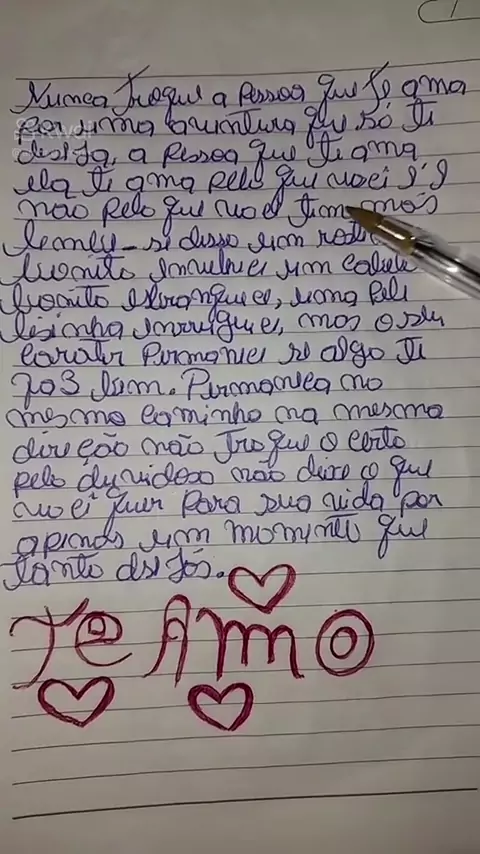 Nunca Troque a Pessoa que Te ama
por uma aventura que só Ti
deseja, a pessoa que Ti ama
ela Ti ama pelo que você é E
não pelo que você Tim mas
lembre-si disso um rosto
bonito invelhece um cabelo
bonito esbranquece, uma pele
lisinha inrruguece, mas o seu
carater Permanece si algo Ti
faz bem. Permaneca no
mesmo caminho na mesma
direção não Troque o certo
pelo duvidoso não dixe o que
você quer para sua vida por
apenas um momento que
tanto desejas.
Te Amo